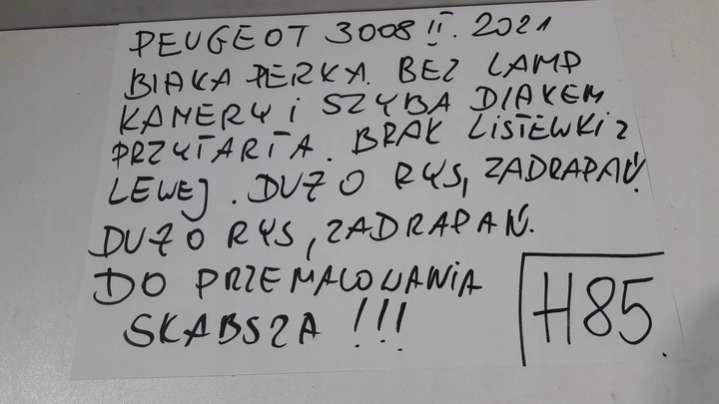 PEUGEOT 3008 II. 2021
BIAŁA PERŁA. BEZ LAMP
KAMERY I SZYBA DIAKEM
PRZYTARTA. BRAK LISTEWKI Z
LEWEJ. DUŻO RYS, ZADRAPAŃ.
DUŻO RYS, ZADRAPAŃ.
DO PRZEMALOWANIA
SŁABSZA !!!
H85.